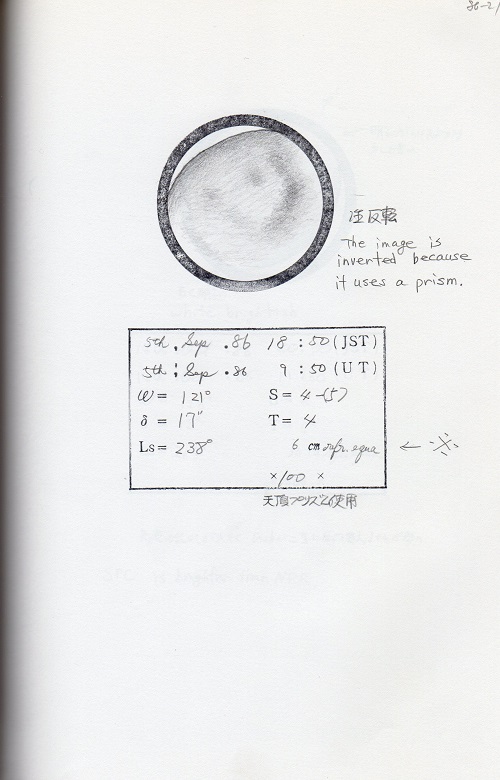 86-21
注 反転
The image is
inverted because
it uses a prism.
5th. Sep .86 18 : 50 (JST)
5th. Sep .86 9 : 50 (UT)
ω = 121° S = 4-(5)
δ = 17" T = 4
Ls = 238° 6 cm refr. equa ← ※
×100 ×
天頂プリズム使用